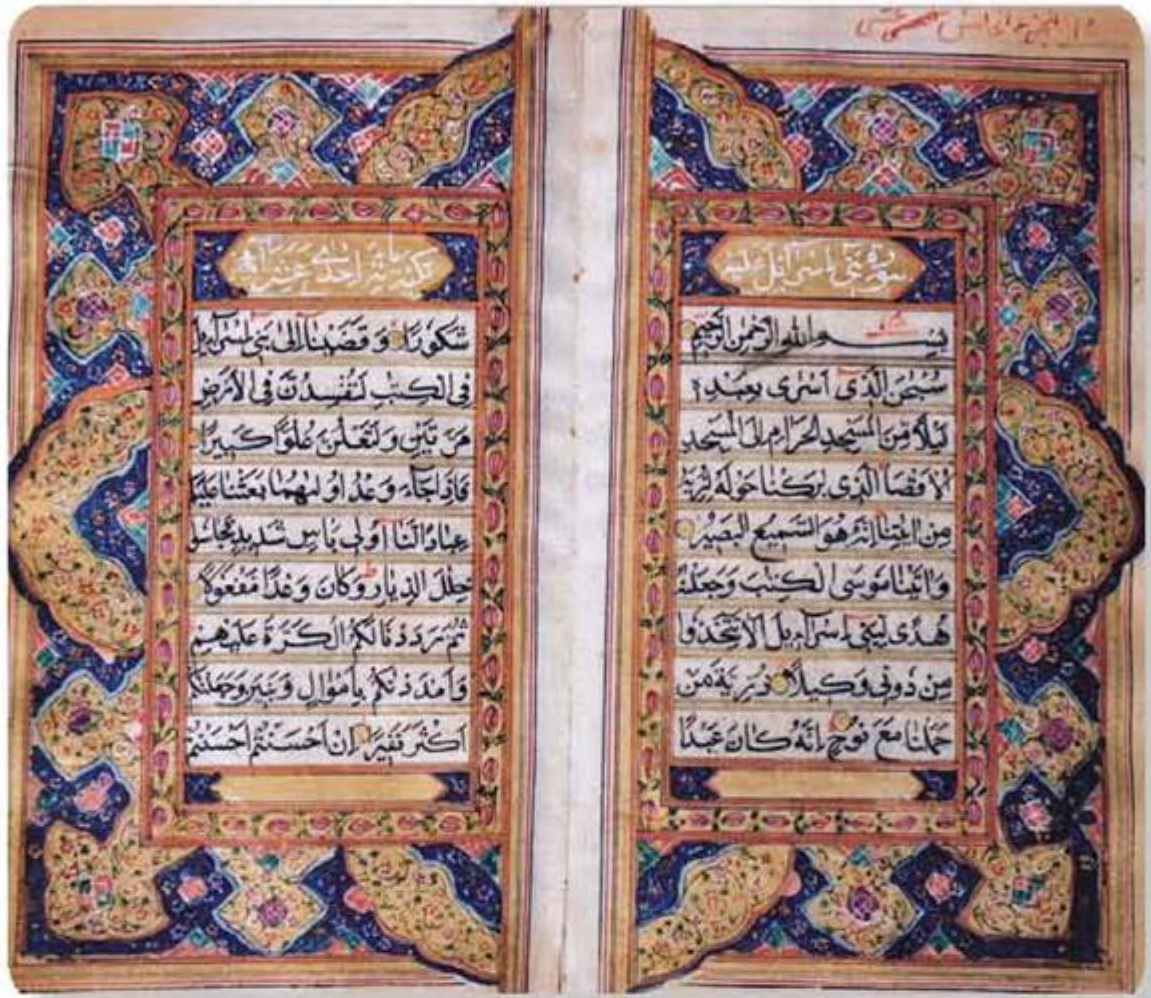 سورة بنی اسرآئیل
بسم الله الرحمن الرحیم
سُبْحٰنَ الَّذِیْ اَسْرٰى بِعَبْدِهٖ
لَیْلًا مِّنَ الْمَسْجِدِ الْحَرَامِ اِلَى الْمَسْجِدِ
الْاَقْصَا الَّذِیْ بٰرَكْنَا حَوْلَهٗ لِنُرِیَهٗ
مِنْ اٰیٰتِنَا اِنَّهٗ هُوَ السَّمِیْعُ الْبَصِیْرُ
وَاٰتَیْنَا مُوْسَى الْكِتٰبَ وَجَعَلْنٰهُ
هُدًى لِّبَنِیْ اِسْرَآءِیْلَ اَلَّا تَتَّخِذُوْا
مِنْ دُوْنِیْ وَكِیْلًا ذُرِّیَّةَ مَنْ
حَمَلْنَا مَعَ نُوْحٍ اِنَّهٗ كَانَ عَبْدًا
شَكُوْرًا وَقَضَیْنَا اِلٰى بَنِیْ اِسْرَآءِیْلَ
فِی الْكِتٰبِ لَتُفْسِدُنَّ فِی الْاَرْضِ
مَرَّتَیْنِ وَلَتَعْلُنَّ عُلُوًّا كَبِیْرًا
فَاِذَا جَآءَ وَعْدُ اُوْلٰىهُمَا بَعَثْنَا عَلَیْكُمْ
عِبَادًا لَّنَا اُولِیْ بَاْسٍ شَدِیْدٍ فَجَاسُوْا
خِلٰلَ الدِّیَارِ وَكَانَ وَعْدًا مَّفْعُوْلًا
ثُمَّ رَدَدْنَا لَكُمُ الْكَرَّةَ عَلَیْهِمْ
وَاَمْدَدْنٰكُمْ بِاَمْوَالٍ وَّبَنِیْنَ وَجَعَلْنٰكُمْ
اَكْثَرَ نَفِیْرًا اِنْ اَحْسَنْتُمْ اَحْسَنْتُمْ